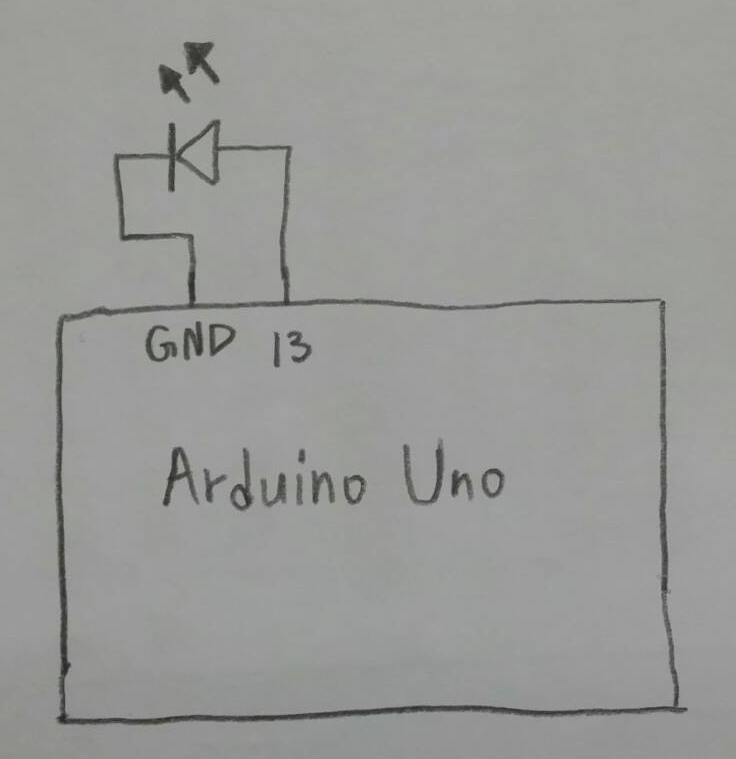 GND 13
Arduino Uno